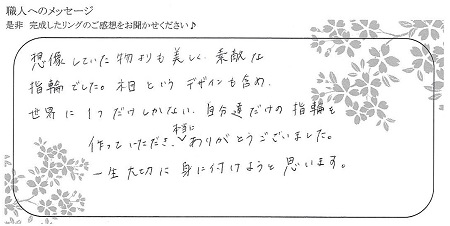 職人へのメッセージ
是非 完成したリングのご感想をお聞かせください♪
想像していた物よりも美しく、素敵な
指輪でした。木目というデザインも含め、
世界に1つだけしかない、自分達だけの指輪を
作っていただき、本当にありがとうございました。
一生大切に身に付けようと思います。